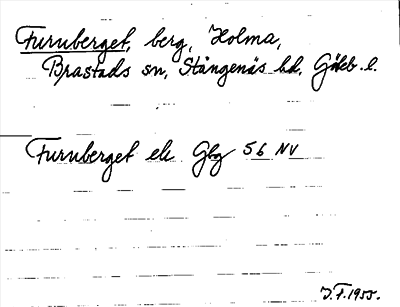 Furuberget, berg, Holma,
Brastads sn, Stångenäs hd, Göteb. l.
Furuberget ek Gbg 56 NV
J.F. 1955.